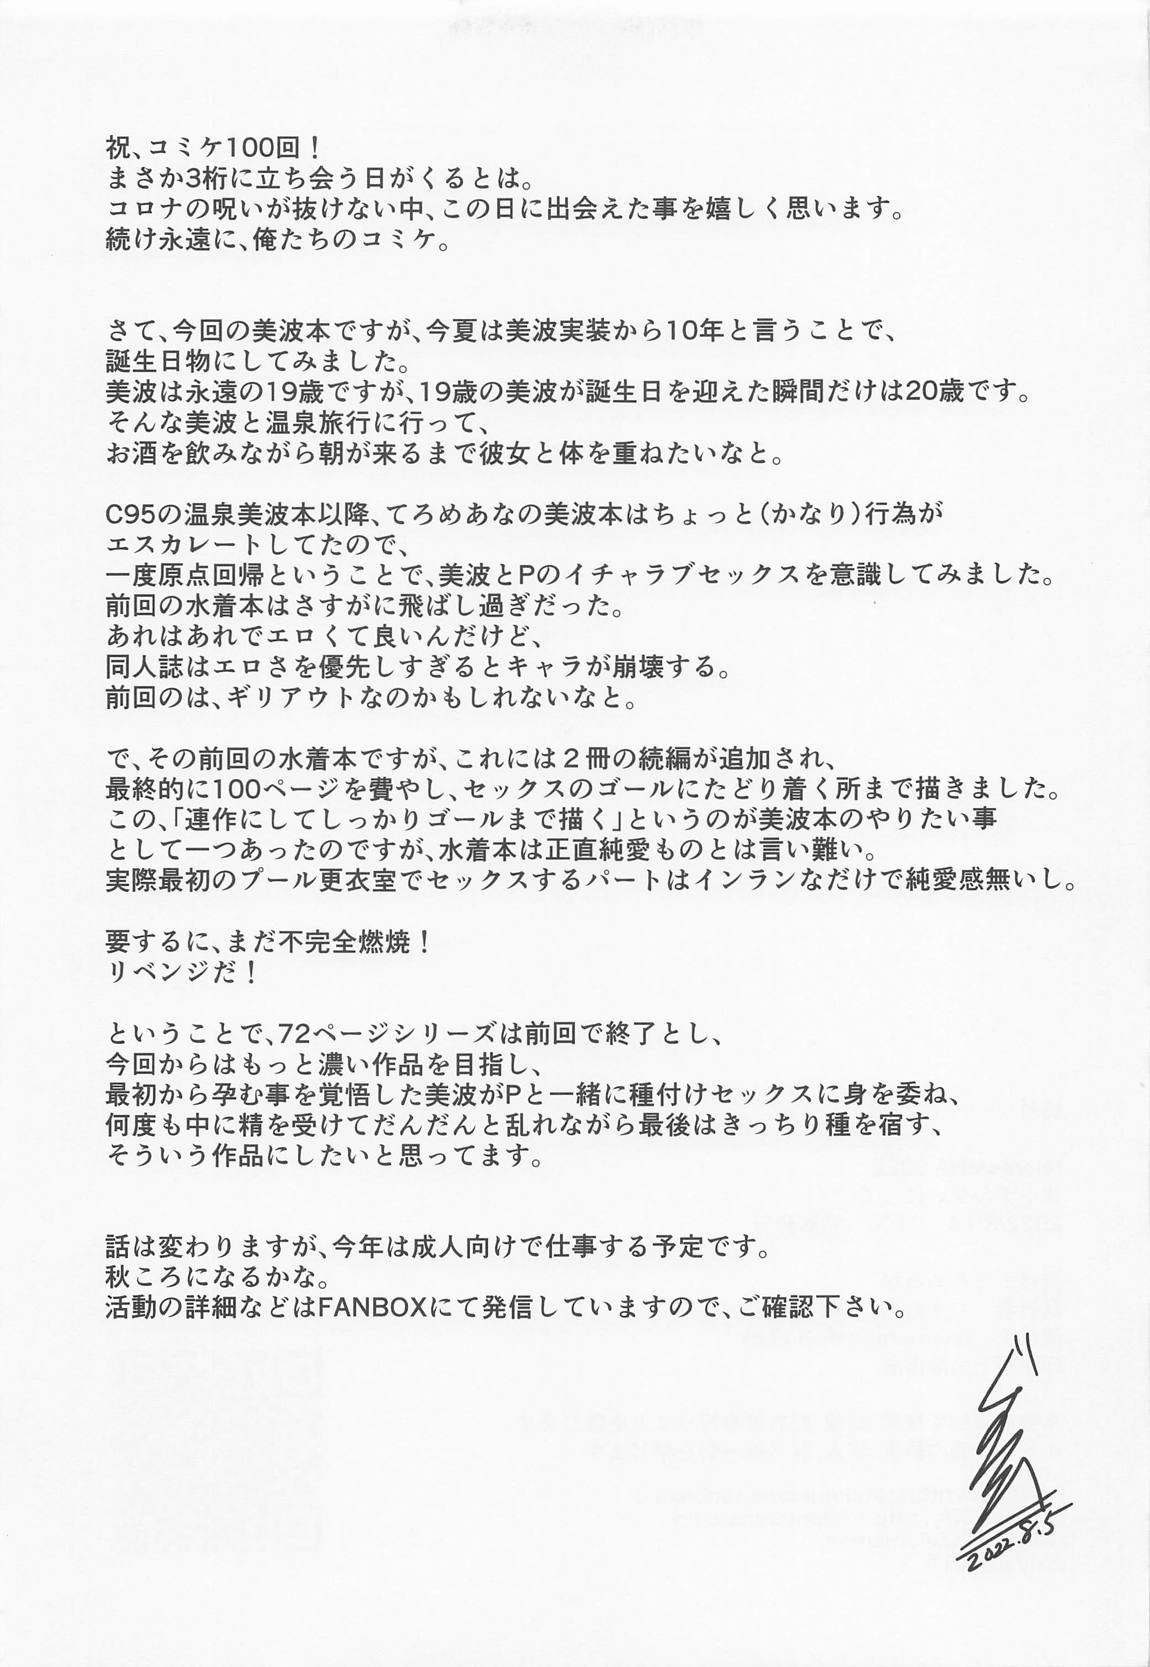 祝、コミケ100回！
まさか3桁に立ち会う日がくるとは。
コロナの呪いが抜けない中、この日に出会えた事を嬉しく思います。
続け永遠に、俺たちのコミケ。
さて、今回の美波本ですが、今夏は美波実装から10年と言うことで、
誕生日物にしてみました。
美波は永遠の19歳ですが、19歳の美波が誕生日を迎えた瞬間だけは20歳です。
そんな美波と温泉旅行に行って、
お酒を飲みながら朝が来るまで彼女と体を重ねたいなと。
C95の温泉美波本以降、てろめあなの美波本はちょっと（かなり）行為が
エスカレートしてたので、
一度原点回帰ということで、美波とPのイチャラブセックスを意識してみました。
前回の水着本はさすがに飛ばし過ぎだった。
あれはあれでエロくて良いんだけど、
同人誌はエロさを優先しすぎるとキャラが崩壊する。
前回のは、ギリアウトなのかもしれないなと。
で、その前回の水着本ですが、これには２冊の続編が追加され、
最終的に100ページを費やし、セックスのゴールにたどり着く所まで描きました。
この、「連作にしてしっかりゴールまで描く」というのが美波本のやりたい事
として一つあったのですが、水着本は正直純愛ものとは言い難い。
実際最初のプール更衣室でセックスするパートはインランなだけで純愛感無いし。
要するに、まだ不完全燃焼！
リベンジだ！
ということで、72ページシリーズは前回で終了とし、
今回からはもっと濃い作品を目指し、
最初から孕む事を覚悟した美波がPと一緒に種付けセックスに身を委ね、
何度も中に精を受けてだんだんと乱れながら最後はきっちり種を宿す、
そういう作品にしたいと思ってます。
話は変わりますが、今年は成人向けで仕事する予定です。
秋ころになるかな。
活動の詳細などはFANBOXにて発信していますので、ご確認下さい。
2022.8.5